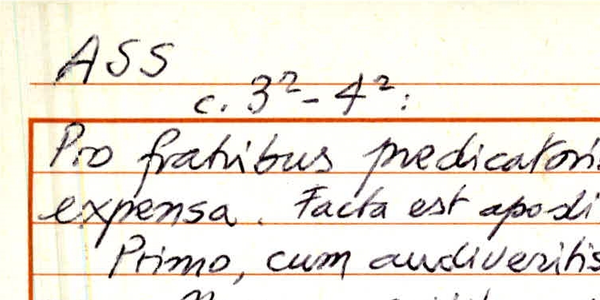 ASS
c. 3²-4²:
Pro fratribus predicatoris
expensa. Facta est aposti
Primo, cum audiveritis